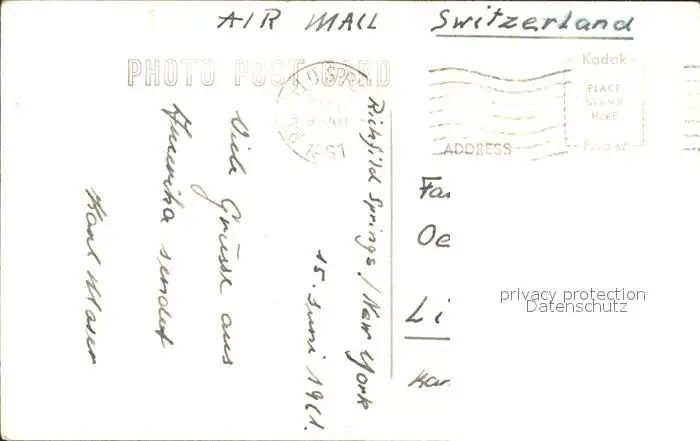 AIR MAIL Switzerland
PHOTO POST CARD
Kodak
PLACE
STAMP
HERE
Paper
ADDRESS
1961
Richfild Springs / New York
15. Juni 1961.
Viele Grüsse aus
Amerika sendet
Karl
Fa
Oe
Li
Kan
privacy protection
Datenschutz